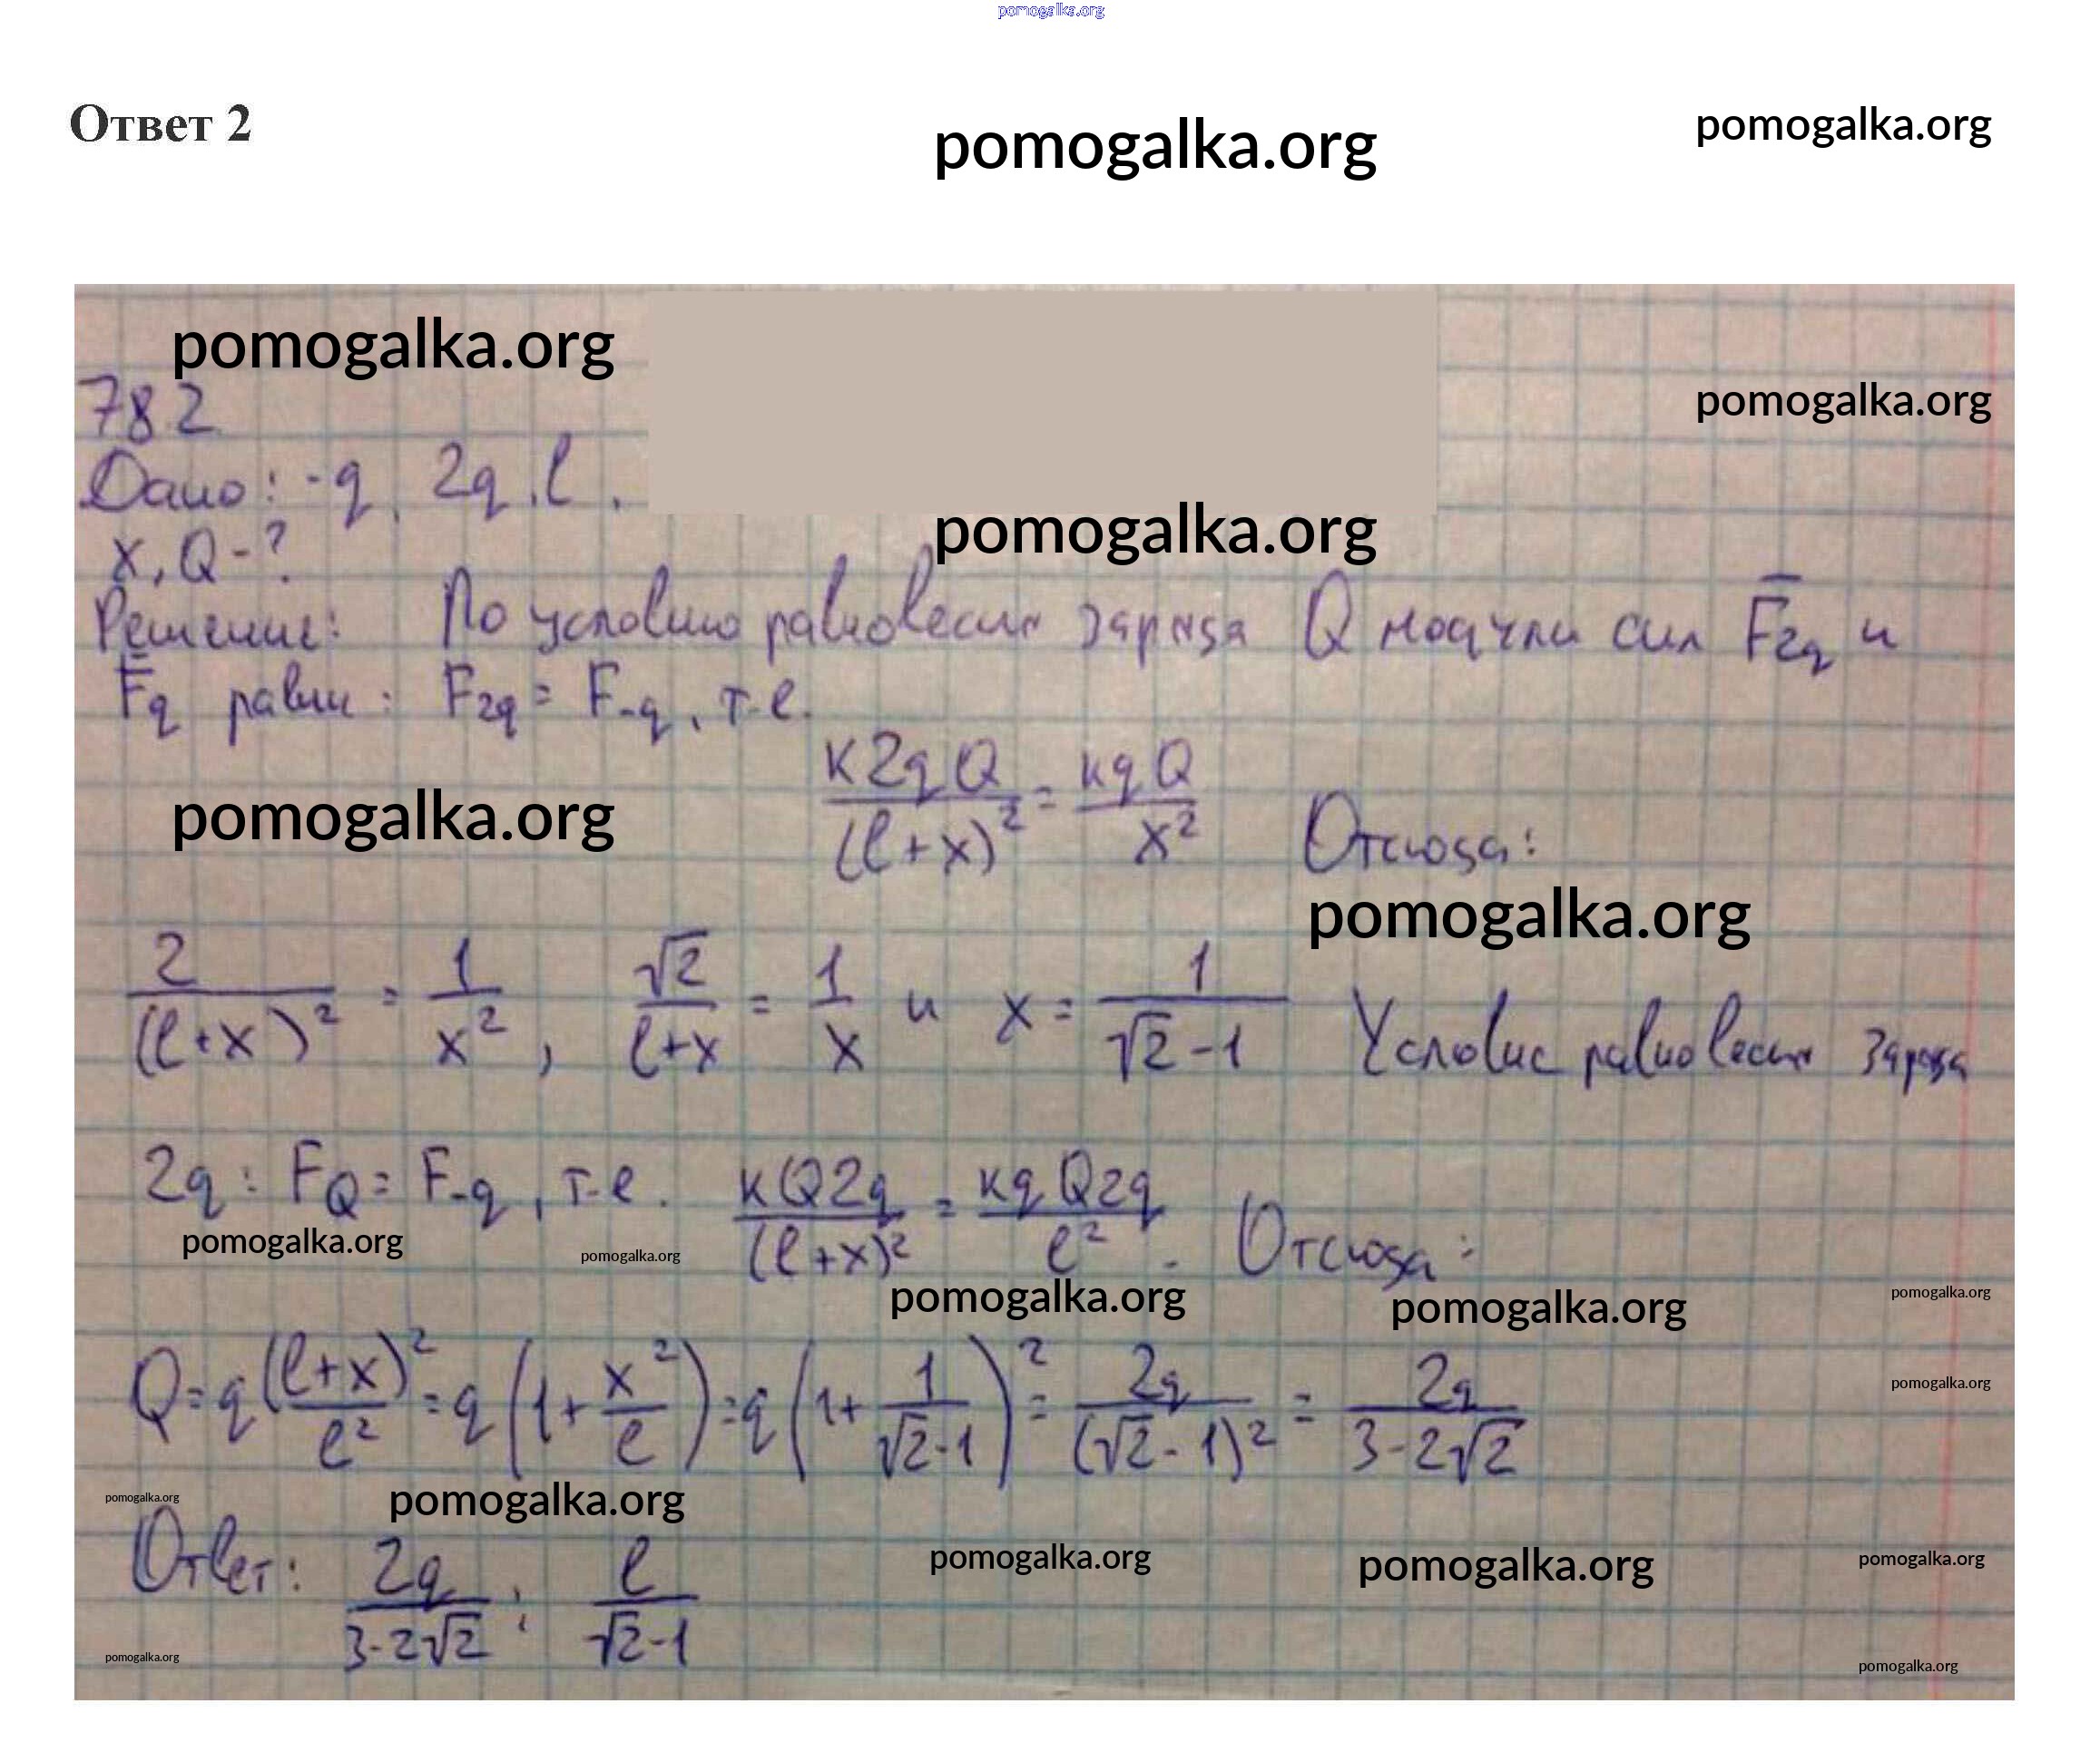 pomogalka.org
Ответ 2
pomogalka.org
pomogalka.org
pomogalka.org
pomogalka.org
782
Дано: -q, 2q, l.
pomogalka.org
x, Q - ?
Решение: По условию равновесия заряда Q модули сил F̅2q и
F̅q равны: F2q = F-q, т.е.
k2qQ/(l+x)² = kqQ/x² Отсюда:
pomogalka.org
pomogalka.org
2/(l+x)² = 1/x², √2/l+x = 1/x и x = 1/√2-1 Условие равновесия заряда
2q: FQ = F-q, т.е. kQ2q/(l+x)² = kqQ2q/l². Отсюда:
pomogalka.org
pomogalka.org
pomogalka.org
pomogalka.org
pomogalka.org
Q = q(l+x)²/l² = q(1+x²/l) = q(1+1/√2-1)² = 2q/(√2-1)² = 2q/3-2√2
pomogalka.org
pomogalka.org
pomogalka.org
Ответ: 2q/3-2√2; l/√2-1
pomogalka.org
pomogalka.org
pomogalka.org
pomogalka.org
pomogalka.org